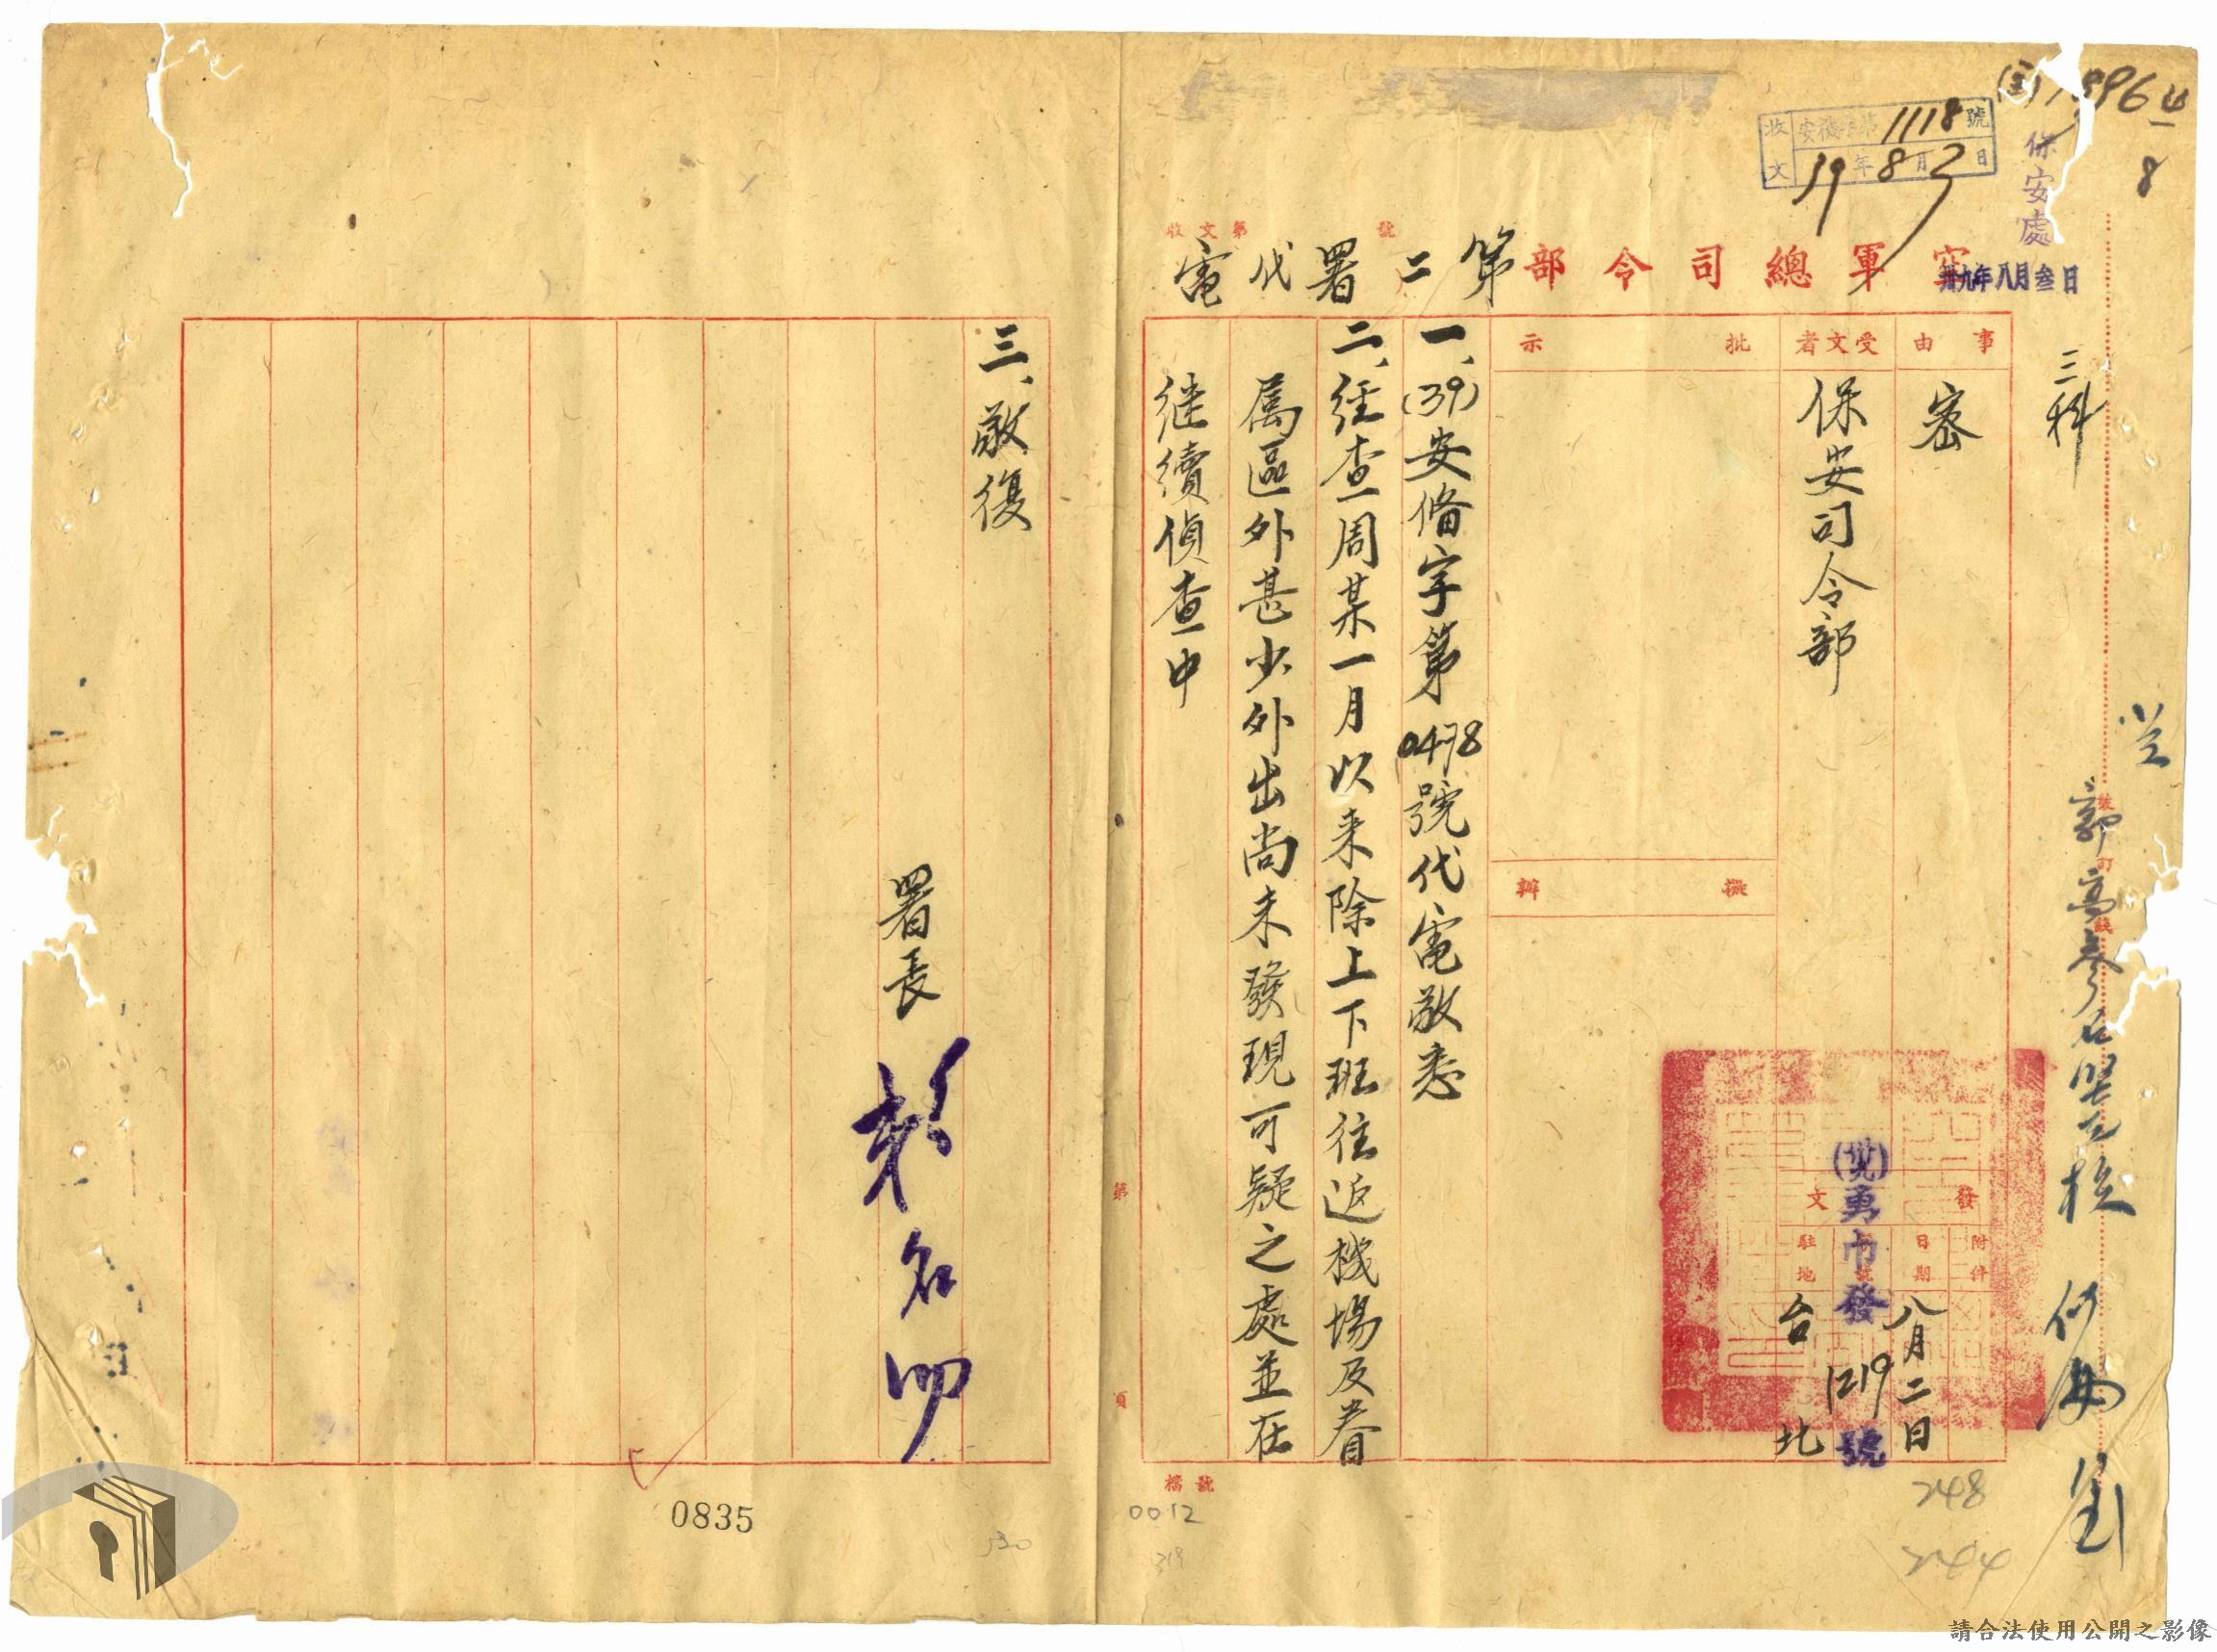 空軍總司令部第二署代電
收文第 號
收文 安 第1118號
39年8月3日
保安處
卅九年八月叁日
三科
事由
密
受文者
保安司令部
批示
擬辦
發文
附件
日期
八月二日
(卅九)勇巾發1219號
駐地
台北
一、(39)安偹字第0478號代電敬悉
二、經查周某一月以来除上下班往返機場及眷
屬區外甚少外出尚未發現可疑之處並在
继續偵查中
三、敬復
署長 彭
裝訂線
第 頁
檔號
0012
248
244
0835
530
319
請合法使用公開之影像